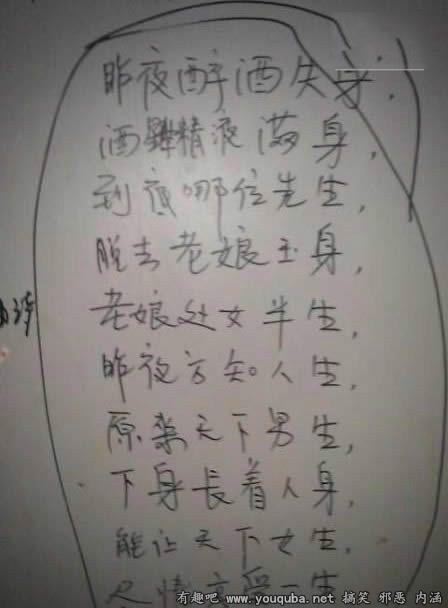 昨夜醉酒失身,
酒 精液满身,
到底哪位先生,
脱去老娘玉身,
老娘处女半生,
昨夜方知人生,
原来天下男生,
下身長着人身,
能让天下女生,
尽情 一生
诗
有趣吧 www.youquba.net 搞笑 邪恶 内涵